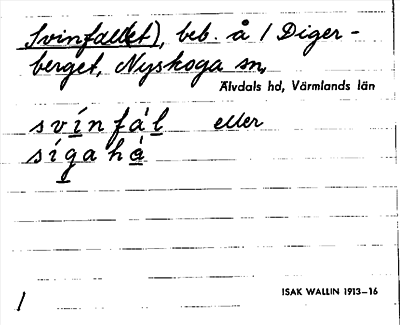 Svinfallet), beb. å / Diger-
berget, Nyskoga sn,
Älvdals hd, Värmlands län
svínfál eller
sígahá
ISAK WALLIN 1913–16
/